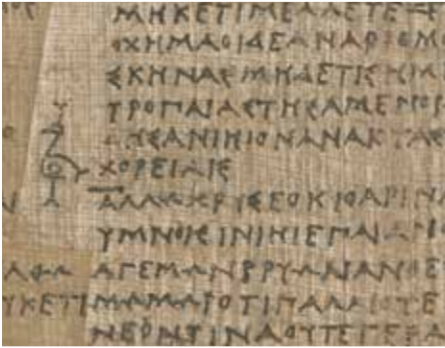 ΜΗΚΕΤΙΜΕΛΛΕΤΕ
ΟΧΗΜΑΟΙΔΕΑΝΑΡΙΘΜΟ
ΣΚΗΝΑΣΜΗΔΕΤΙΣΗΜ
ΤΡΟΠΑΙΑΣΤΗΣΑΜΕΝΟΙ
ΗΣΑΝΙΗΙΟΝΑΝΑΚΤΑΣ
ΧΟΡΕΙΑΙΣ
ΑΛΛΩΧΡΥΣΕΟΚΙΘΑΡΙΝ
ΥΜΝΟΙΣΙΝΙΗΙΕΠΑΙΑΝ
ΑΓΕΜΩΝΒΡΥΩΝΑΝΘΕ
ΥΚΕΤΙ ΜΩΜΩΙΟΤΙΠΑΛΑΙΟΤΕ
ΝΕΟΝΤΙΝΑΟΥΤΕΓΕΡΑ